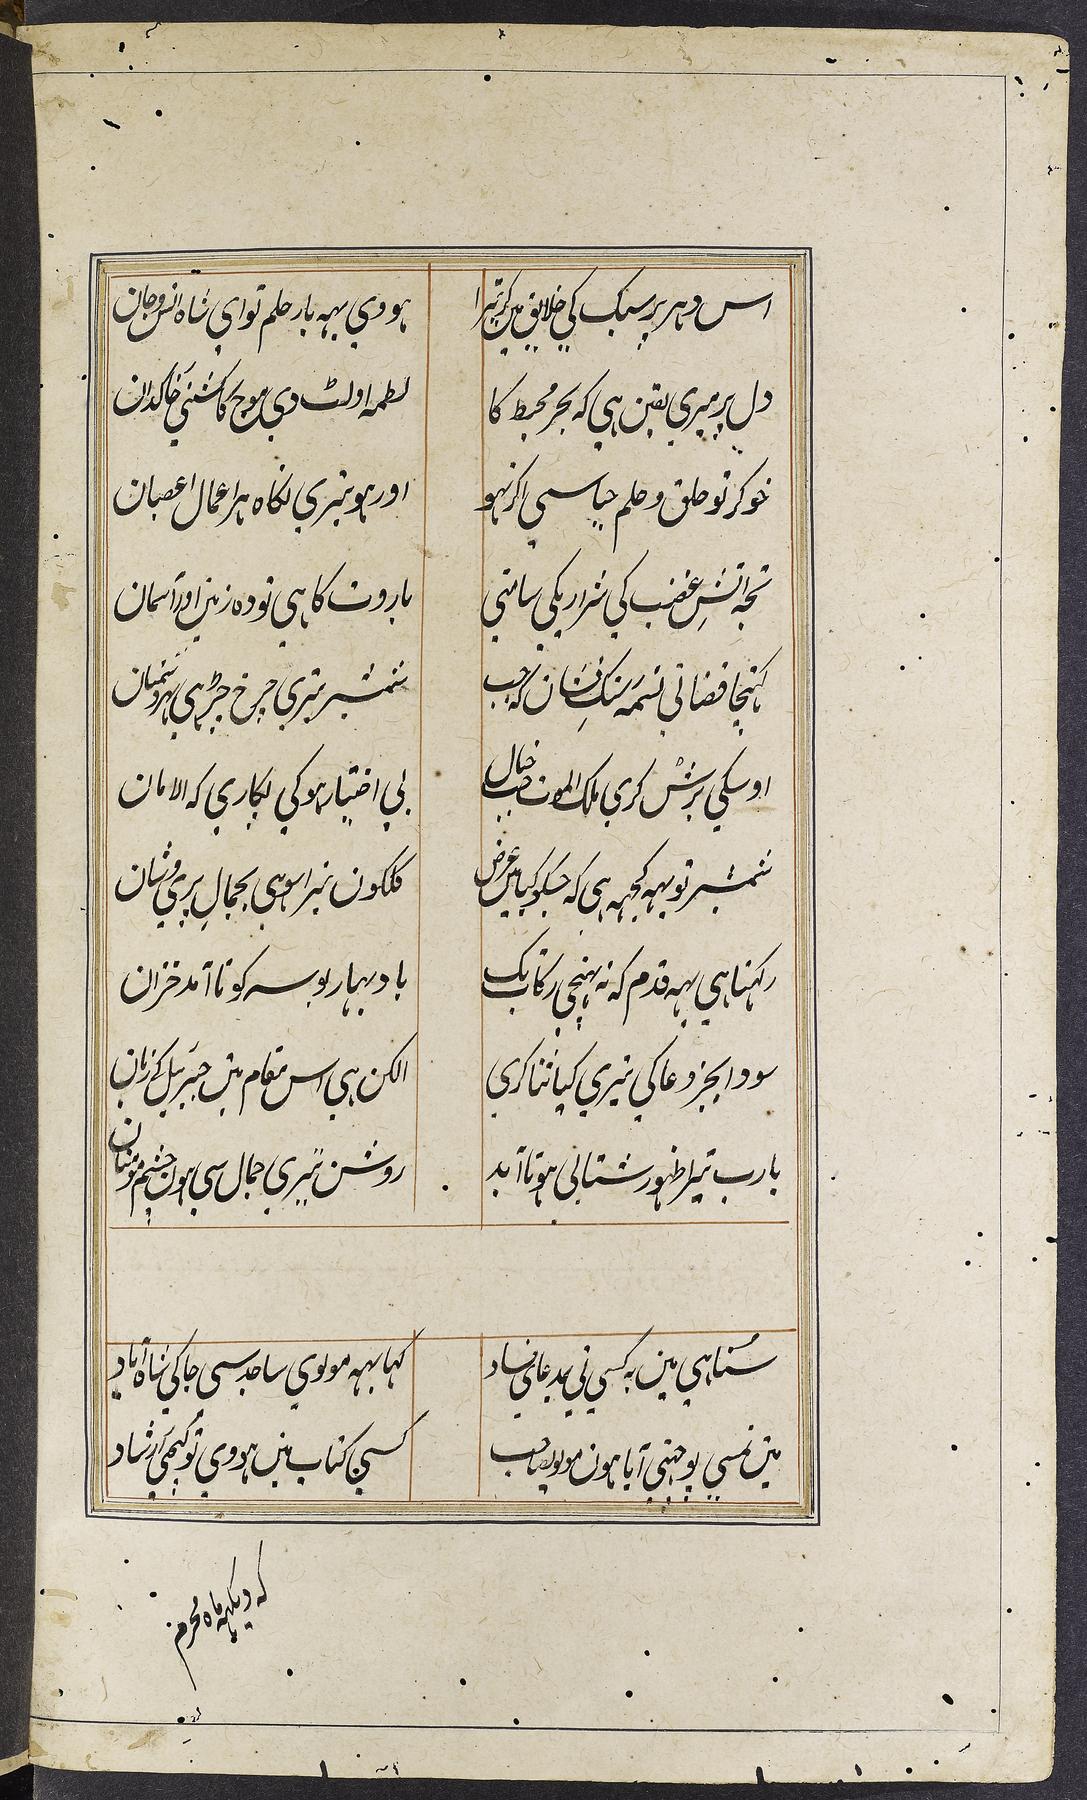 اس دہر پر سبک کی خلایق میں گر تیرا
ہووي یہہ بار حلم تو اي شاہ انس و جان
دل پر میري یقین ہي کہ بحر محیط کا
لطمہ اولٹ دي موج کا کشتي خاکدان
خوگر تو خلق و حلم حیا سي اگر نہو
اور ہو تیري نگاہ ہر اعمال
تجہ اتشِ غضب کي شرار یکي سامني
باروت کا ہي تودہ زمین اور آسمان
کہنچا قضا ني تسمہ کہ جب
شمشیر تیري چرخ چڑہي بہر دشمنان
اوسکي برشْ کري ملک الموت جب خیال
بي اختیار ہوکي پکاري کہ الامان
شمشیر تو یہہ کچہہ ہي کہ جسکو کیا میں عرض
گلگون تیرا سو ہي بجمالِ پري وشان
رکہتا ہي یہہ قدم کہ نہ پہنچي رکاب تک
باد بہار بوسہ کو تا آمد خزان
سودا بجز دعا کي تیري کیا ثنا کري
الکن ہي اس مقام میں جبرئیل کے زبان
یارب تیرا ظہور شتابي ہو تا ابد
روشن تیري جمال سي ہون چشم مومنان
سُنا ہي مین یہ کسي ني بمدعاي فساد
کہا یہہ مولوي ساجد سي جاکي شاہ آباد
میں تمسي پوچہني آیا ہون مولویصاحب
کسي کتاب میں ہووي تو کیجي ارشاد
کہ دیکہہ ماہ محرم